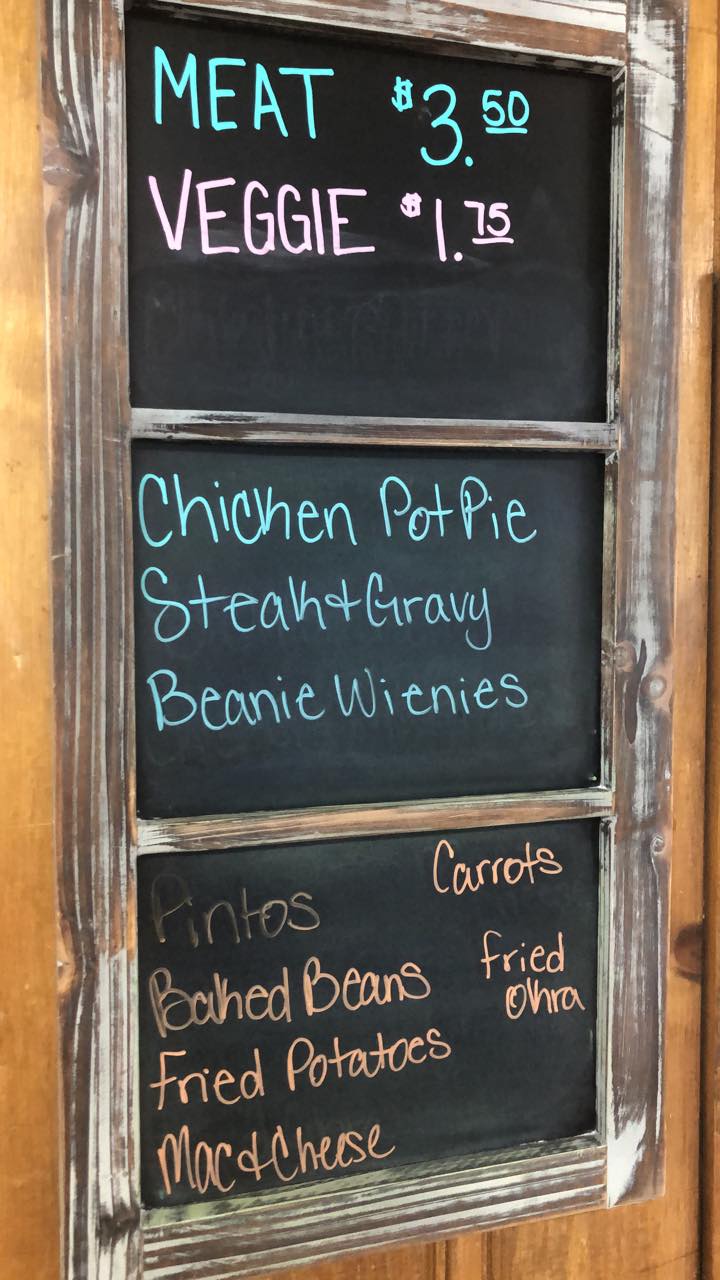 MEAT $3.50
VEGGIE $1.75
Chicken Pot Pie
Steak & Gravy
Beanie Wienies
Carrots
Pintos
Baked Beans
Fried Okra
Fried Potatoes
Mac & Cheese